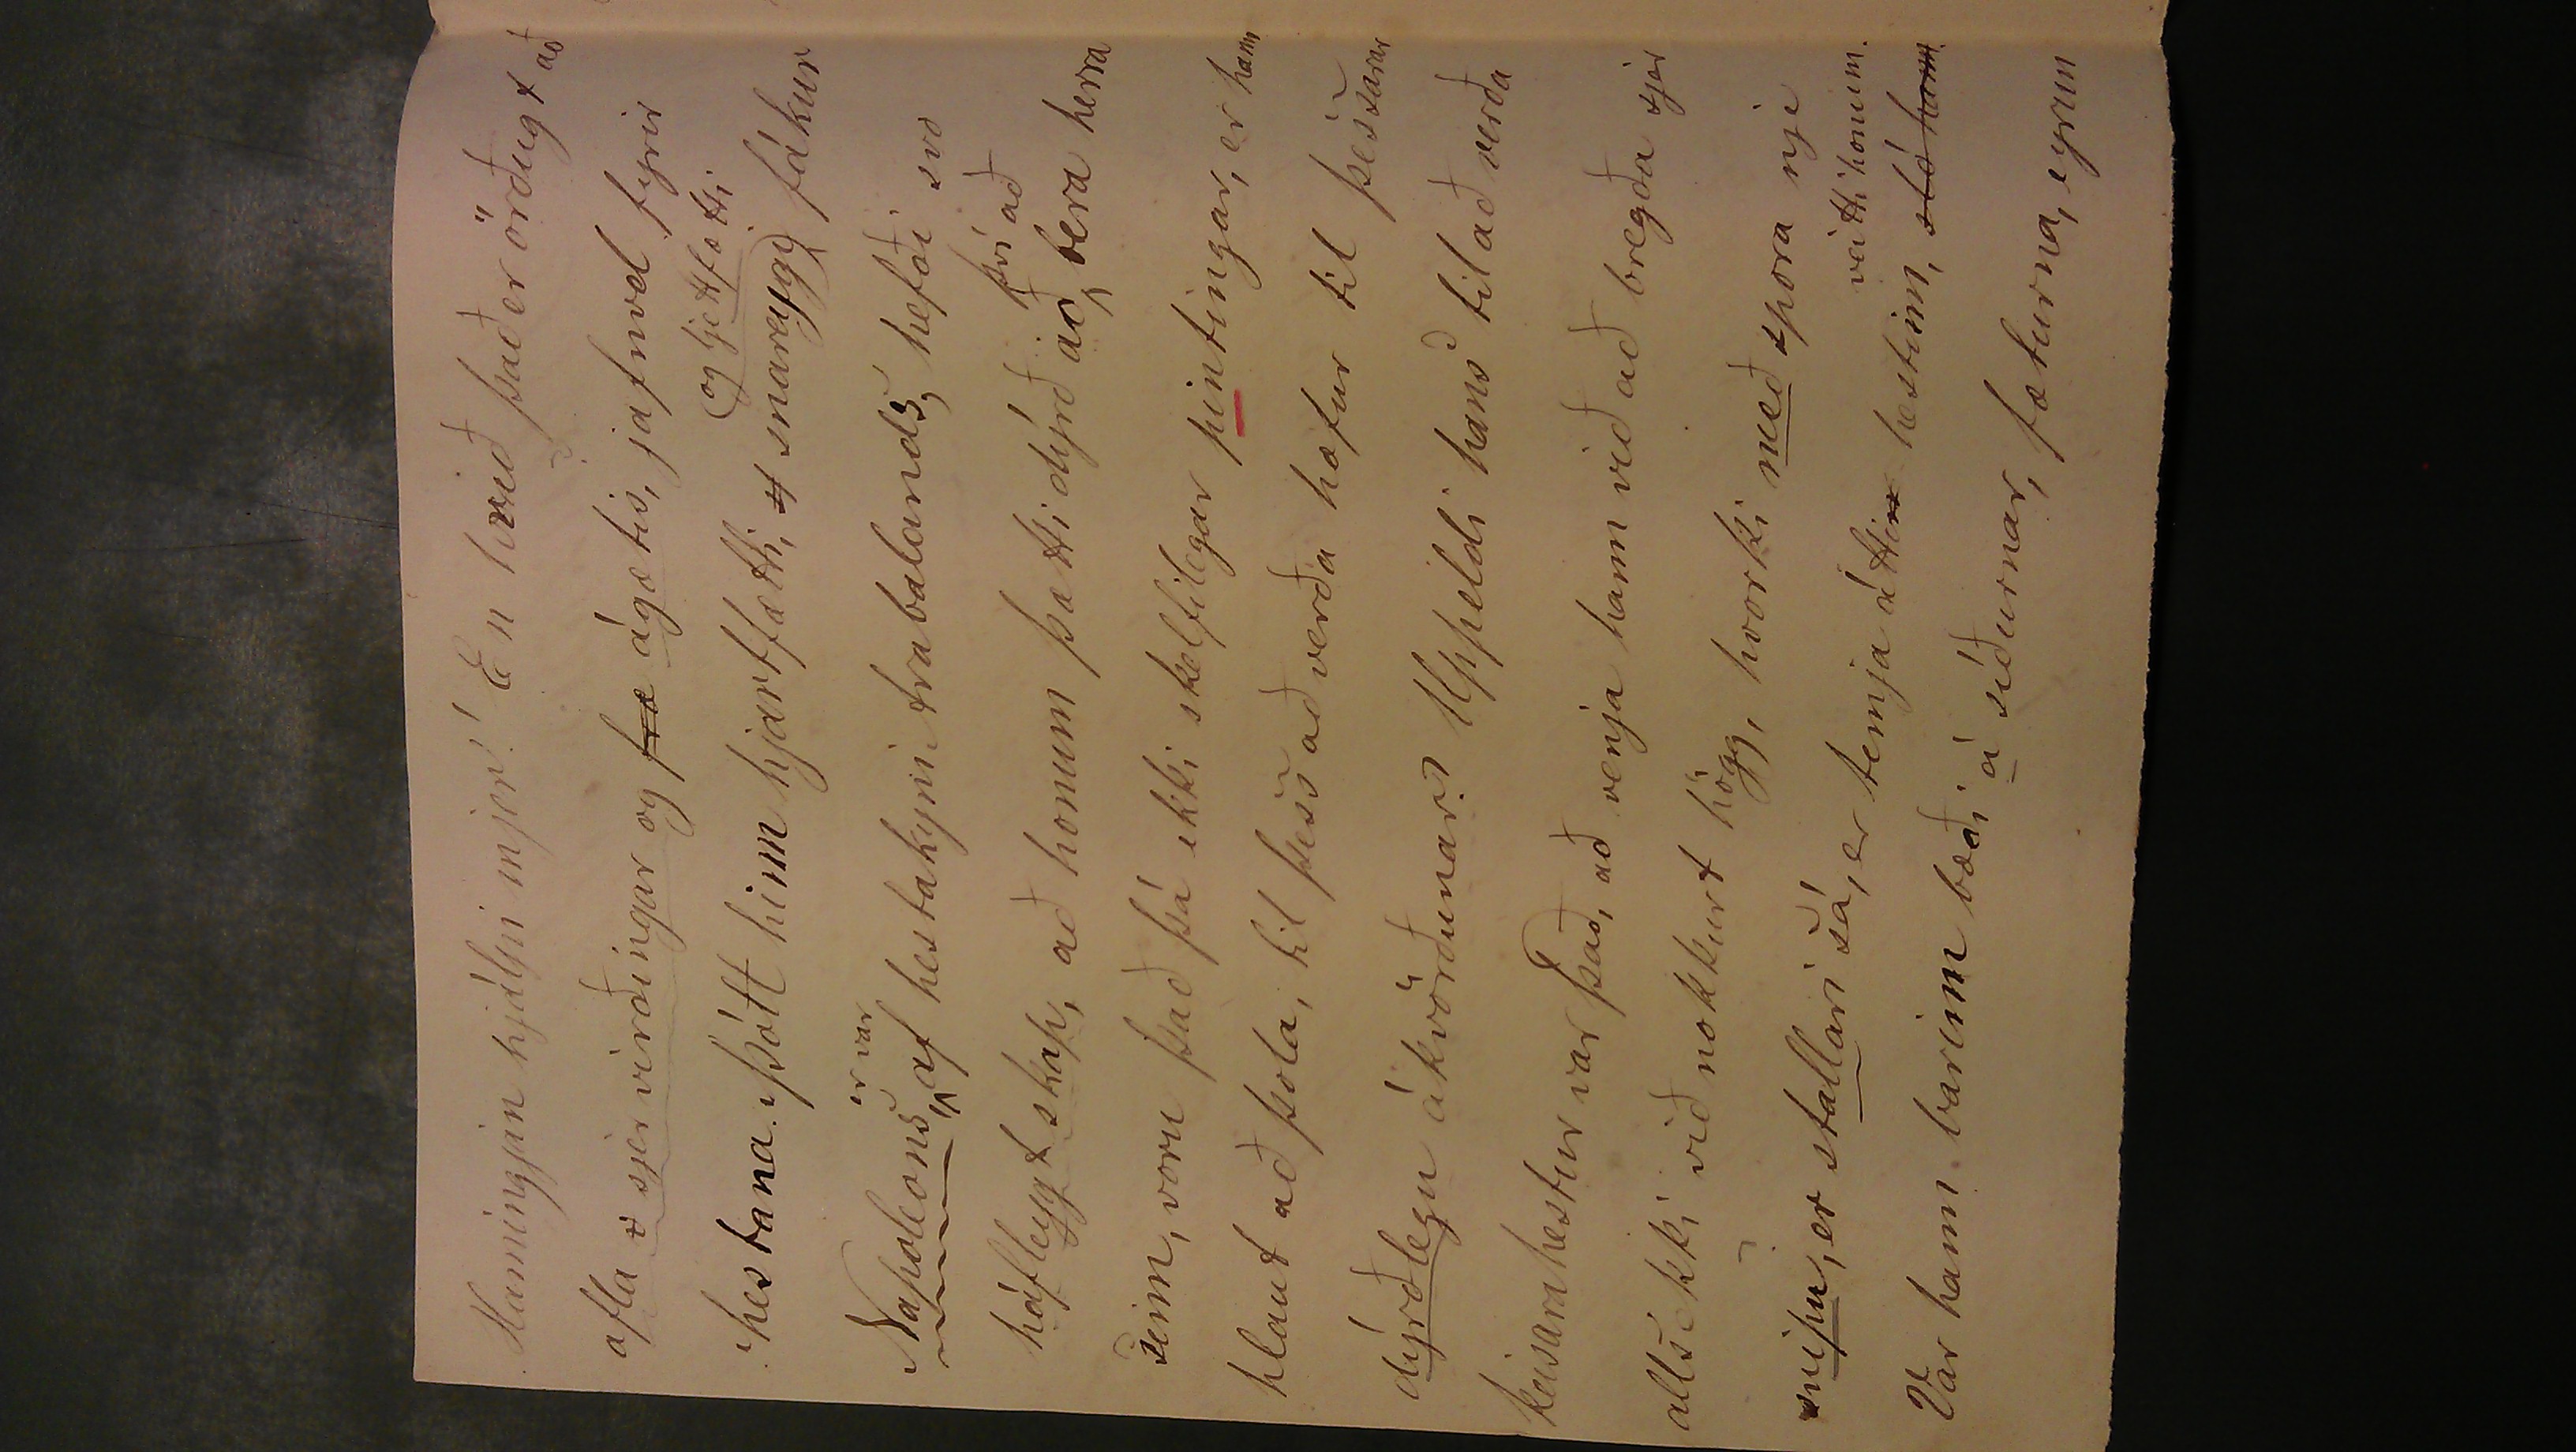 Hamingjan hjálpi mjer! En hvað það er örðugt að
afla sjer virðingar og fræ ágætis, jafnvel fyrir
og fjettfætti
hestana. Þótt hinn hjartfætti, snareygji fákur
er var
Napoleons af hestakyni Arabalands, hefði svo
því að
háfleygt skap, að honum þætti dýrð að bera herra
sinn, voru það þá ekki skelfilegar píntingar, er hann
hlaut að þola, til þess að verða hæfur til þessarar
dýrðlegu ákvörðunar? Uppeldi hans til að verða
keisarahestur var það, að venja hann við að bregða sjer
alls ekki við nokkurt högg, hvorki með spora nje
veitti honum.
svipu, er stallari sá, er temja átti hestinn, sló hann
Var hann barinn bæði á síðurnar, fæturna, eyrun